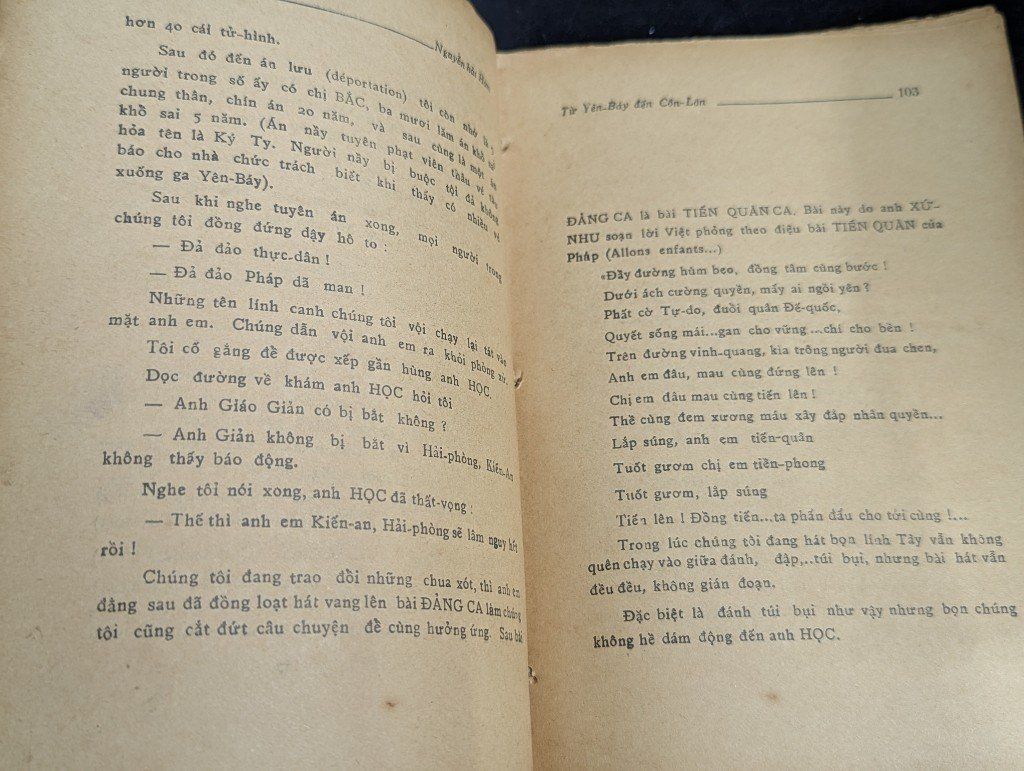 Nguyễn hải Hàm
hơn 40 cái tử-hình.
Sau đó đến án lưu (déportation) tôi còn nhớ là 3
người trong số ấy có chị BẮC, ba mươi lăm án khổ sai
chung thân, chín án 20 năm, và sau cùng là một án
khổ sai 5 năm. (Án nầy tuyên phạt viên thầu vé tàu
hỏa tên là Ký Ty. Người nầy bị buộc tội đã không
báo cho nhà chức trách biết khi thấy có nhiều vé
xuống ga Yên-Báy).
Sau khi nghe tuyên án xong, mọi người trong
chúng tôi đồng đứng dậy hô to :
— Đả đảo thực-dân !
— Đả đảo Pháp dã man !
Những tên lính canh chúng tôi vội chạy lại tát vào
mặt anh em. Chúng dẫn vội anh em ra khỏi phòng xử.
Tôi cố gắng để được xếp gần hùng anh HỌC.
Dọc đường về khám anh HỌC hỏi tôi
— Anh Giáo Giản có bị bắt không ?
— Anh Giản không bị bắt vì Hải-phòng, Kiến-An
không thấy báo động.
Nghe tôi nói xong, anh HỌC đã thất-vọng :
— Thế thì anh em Kiến-an, Hải-phòng sẽ lâm nguy hết
rồi !
Chúng tôi đang trao đổi những chua xót, thì anh em
đằng sau đã đồng loạt hát vang lên bài ĐẢNG CA làm chúng
tôi cũng cắt đứt câu chuyện để cùng hưởng ứng. Sáu bài
Từ Yên-Báy đến Côn-Lôn 103
ĐẢNG CA là bài TIẾN QUÂN CA. Bài này do anh XỨ-
NHU soạn lời Việt phỏng theo điệu bài TIẾN QUÂN của
Pháp (Allons enfants...)
«Đầy đường hùm beo, đồng tâm cùng bước !
Dưới ách cường quyền, mấy ai ngồi yên ?
Phất cờ Tự-do, đuổi quân Đế-quốc,
Quyết sống mái...gan cho vững ...chí cho bền !
Trên đường vinh-quang, kìa trông người đua chen,
Anh em đâu, mau cùng đứng lên !
Chị em đâu mau cùng tiến lên !
Thề cùng đem xương máu xây đắp nhân quyền...
Lắp súng, anh em tiến-quân
Tuốt gươm chị em tiền-phong
Tuốt gươm, lắp súng
Tiến lên ! Đồng tiến...ta phấn đấu cho tới cùng !...
Trong lúc chúng tôi đang hát bọn lính Tây vẫn không
quên chạy vào giữa đánh, đập,..túi bụi, nhưng bài hát vẫn
đều đều, không gián đoạn.
Đặc biệt là đánh túi bụi như vậy nhưng bọn chúng
không hề dám động đến anh HỌC.